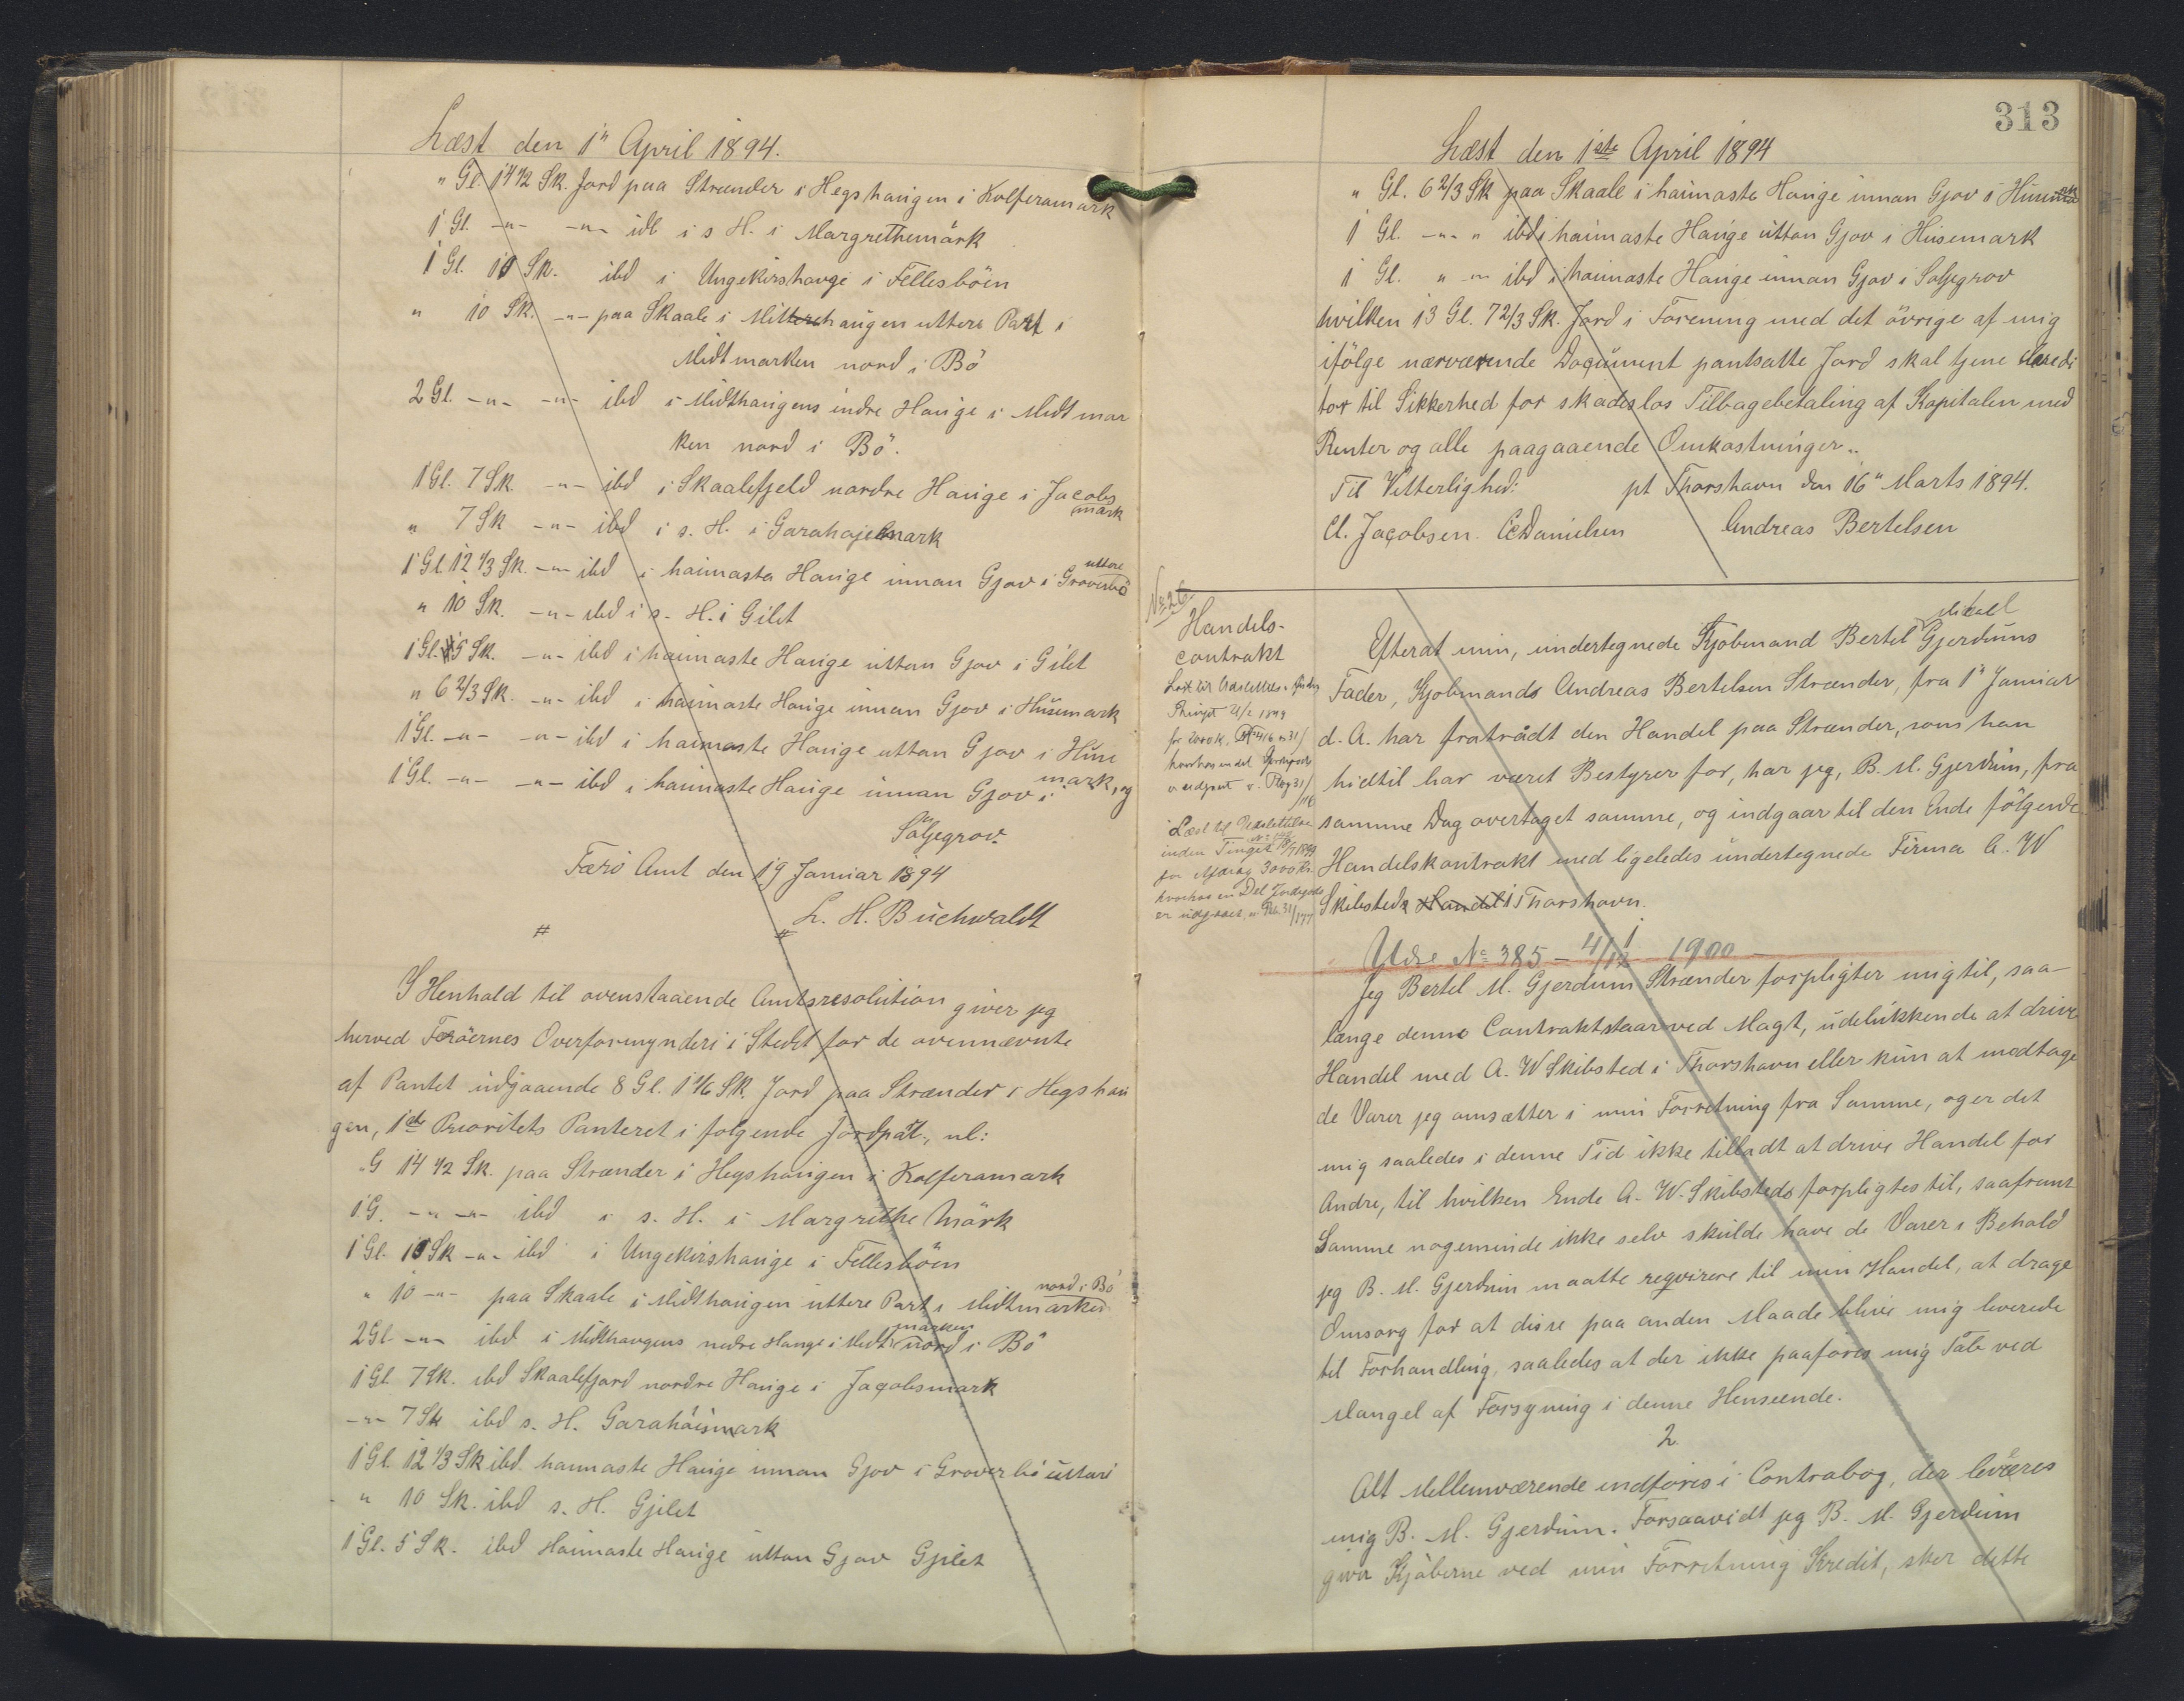 Læst den 1" April 1894.
" Gl. 14 1/2 Sk. Jord paa Strænder i Hegshaugen i Kolferamark
1 Gl. -"- -"- ibd i s H. i Margrethemärk
1 Gl. 10 Sk. ibd i Ungekirshauge i Fellesböen
" 10 Sk. -"- paa Skaale i Mitterehaugen uttere Part i
Midtmarken nord i Bö
2 Gl. -"- -"- ibd i Midthaugens indre Hauge i Midtmar
ken nord i Bö.
1 Gl. 7 Sk. -"- ibd i Skaalefjeld nordre Hauge i Jacobs
mark
" 7 Sk -"- ibd i s. H. i Garahajemark
1 Gl 12 1/3 Sk. -"- ibd i haimasta Hauge innan Gjov i Groverbö
uttere
" 10 Sk. -"- ibd i s. H. i Gilet
1 Gl. 5 Sk. -"- ibd i haimaste Hauge uttan Gjov i Gilet
" 6 2/3 Sk. -"- ibd i haimaste Hauge innan Gjov i Husemark
1 Gl. -"- -"- ibd i haimaste Hauge uttan Gjov i Huse
mark, og
1 Gl. -"- -"- ibd i haimaste Hauge innan Gjov i
Säljegrov.
Færö Amt den 19 Januar 1894
L. H. Buchwaldt
I Henhold til ovenstaaende Amtsresolution giver jeg
herved Færöernes Overformynderi i Stedet for de ovennævnte
af Pantet udgaaende 8 Gl. 1 1/6 Sk. Jord paa Strænder i Hegshau
gen, 1ste Prioritets Panteret i folgende Jordpart, nl:
"G 14 1/2 Sk. paa Strænder i Hegshaugen i Kolferamark
1 G. -"- -"- ibd i s. H. i Margrethe Märk
1 Gl. 10 Sk -"- ibd i Ungekirshauge i Fellesböen
" 10 -"- paa Skaale i Midthaugen uttere Part i Midtmarken
nord i Bö
2 Gl -"- ibd i Midthaugens nedre Hauge i Midtmarken nord i Bö
1 Gl 7 Sk. ibd Skaalefjord nordre Hauge i Jacobsmark
-"- 7 Sk ibd s. H. Garahäismark
1 Gl. 12 1/3 Sk ibd haimaste Hauge innan Gjov i Groverbö uttari
" 10 Sk. ibd s. H. Gjilet
1 Gl. 5 Sk. ibd Haimaste Hauge uttan Gjov Gjilet
313
Læst den 1ste April 1894
" Gl. 6 2/3 Sk paa Skaale i haimaste Hauge innan Gjov i Husemark
1 Gl. -"- " ibd i haimaste Hauge uttan Gjov i Husemark
1 Gl. " -"- ibd i haimaste Hauge innan Gjov i Saljegrov
hvilken 13 Gl. 7 2/3 Sk. Jord i Forening med det övrige af mig
ifölge nærværende Document pantsatte Jord skal tjene Credi
tor til Sikkerhed for skadeslos Tilbagebetaling af Kapitalen med
Renter og alle paagaaende Omkostninger..
Til Vitterlighed: pt Thorshavn den 16" Marts 1894.
Cl. Jacobsen. C Danielsen Andreas Bertelsen
No 26.
Handels-
contrakt
Efterat min, undertegnede Kjobmand Bertel Mikael Gjerdums
Fader, Kjobmands Andreas Bertelsen Strænder, fra 1" Januar
d. A. har fratrådt den Handel paa Strænder, som han
hidtil har været Bestyrer for, har jeg, B. M. Gjerdum, fra
samme Dag overtaget samme, og indgaar til den Ende fölgende
Handelskontrakt med ligeledes undertegnede Firma A. W
Skibsteds Handel i Thorshavn.
Læst til Udslettelse
inden Tinget
for Afdrag 3000 Kr.
hvorhos en Del Jordegods
er udgaaet
1
Udsl No 385 - 4/12 1900
Jeg Bertel M. Gjerdum Strænder forpligter mig til, saa-
længe denne Contrakt staar ved Magt, udelukkende at drive
Handel med A. W Skibsted i Thorshavn eller kun at modtage
de Varer jeg omsætter i min Forretning fra Samme, og er det
mig saaledes i denne Tid ikke tilladt at drive Handel for
Andre, til hvilken Ende A. W. Skibsteds forpligtes til, saafremt
Samme nogensinde ikke selv skulde have de Varer i Behold
jeg B. M. Gjerdum maatte reqvirere til min Handel, at drage
Omsorg for at disse paa anden Maade blive mig leverede
til Forhandling, saaledes at der ikke paaföres mig Tab ved
Mangel af Forsyning i denne Henseende.
2.
Alt Mellemværende indföres i Contrabog, der leveres
mig B. M. Gjerdum. Forsaavidt jeg B. M. Gjerdum
giver Kjöberne ved min Forretning Kredit, sker dette